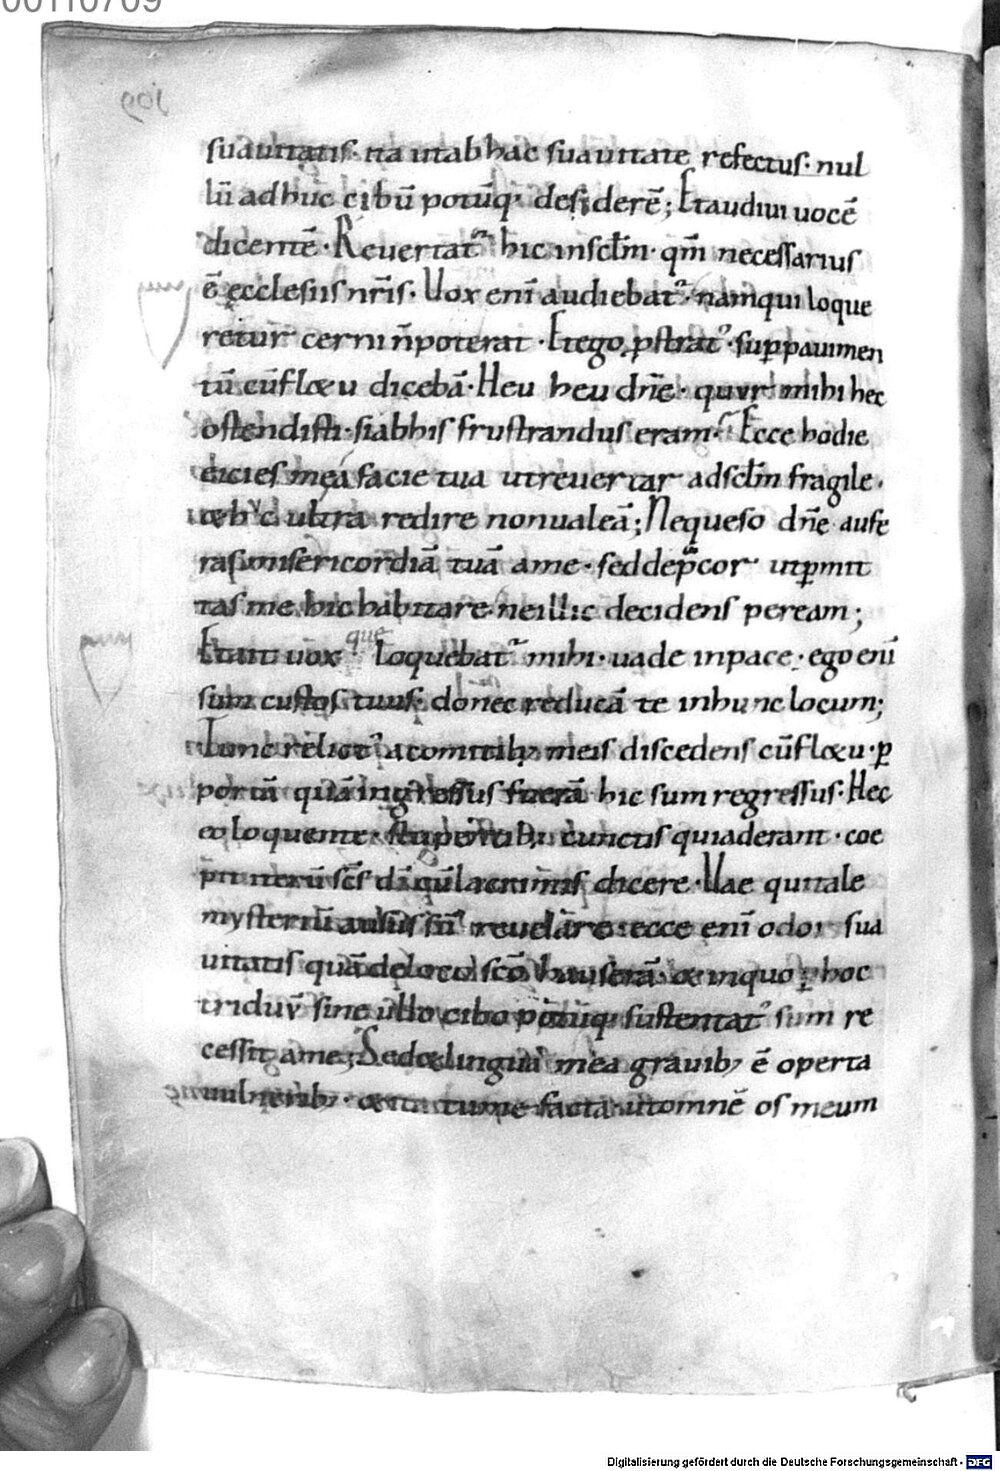 00110709
109
suauitatis· ita ut ab hac suauitate refectus· nul
lū adhuc cibū potūq· desiderē; Et audiui uocē
dicentē· Reuertat᷑ hic in sc̄lm· qm̄ necessarius
ē ęcclesiis nr̄is· Uox eni audiebat᷑· nam qui loque
retur cerni n̄ poterat· Et ego ꝓstrat᷒· suꝑ pauimen
tū cū fletu dicebā· Heu heu dn̄e· quur mihi hec
ostendisti· si ab his frustrandus eram· Ecce hodie
eicies me a facie tua ut reuertar ad sc̄lm fragile·
et huc ultra redire non ualeā; Ne queso dn̄e aufe
ras misericordiā tuā a me· sed dep̄cor ut ꝑmit
tas me hic habitare ne illic decidens peream;
Et ait uox que loquebat᷑ mihi· uade in pace· ego eni
sum custos tuus· donec reducā te in hunc locum;
Tunc relict᷒ a comitib; meis discedens cū fletu· ꝑ
portā quā ingressus fuerā hic sum regressus· Hec
eo loquente· stupentib; cunctis qui aderant· coe
pit iterū sc̄s dī cū lacrimis dicere· Uae qui tale
mysteriū ausus sū reuelare· ecce eni odor sua
uitatis quā de loco sc̄o hauserā· et in quo ꝑ hoc
triduū sine ullo cibo potūq· sustentat᷒ sum re
cessit a me; Sed et lingua mea grauib; ē operta
uulnerib;· et ita tume facta· ut omnē os meum
Digitalisierung gefördert durch die Deutsche Forschungsgemeinschaft - DFG